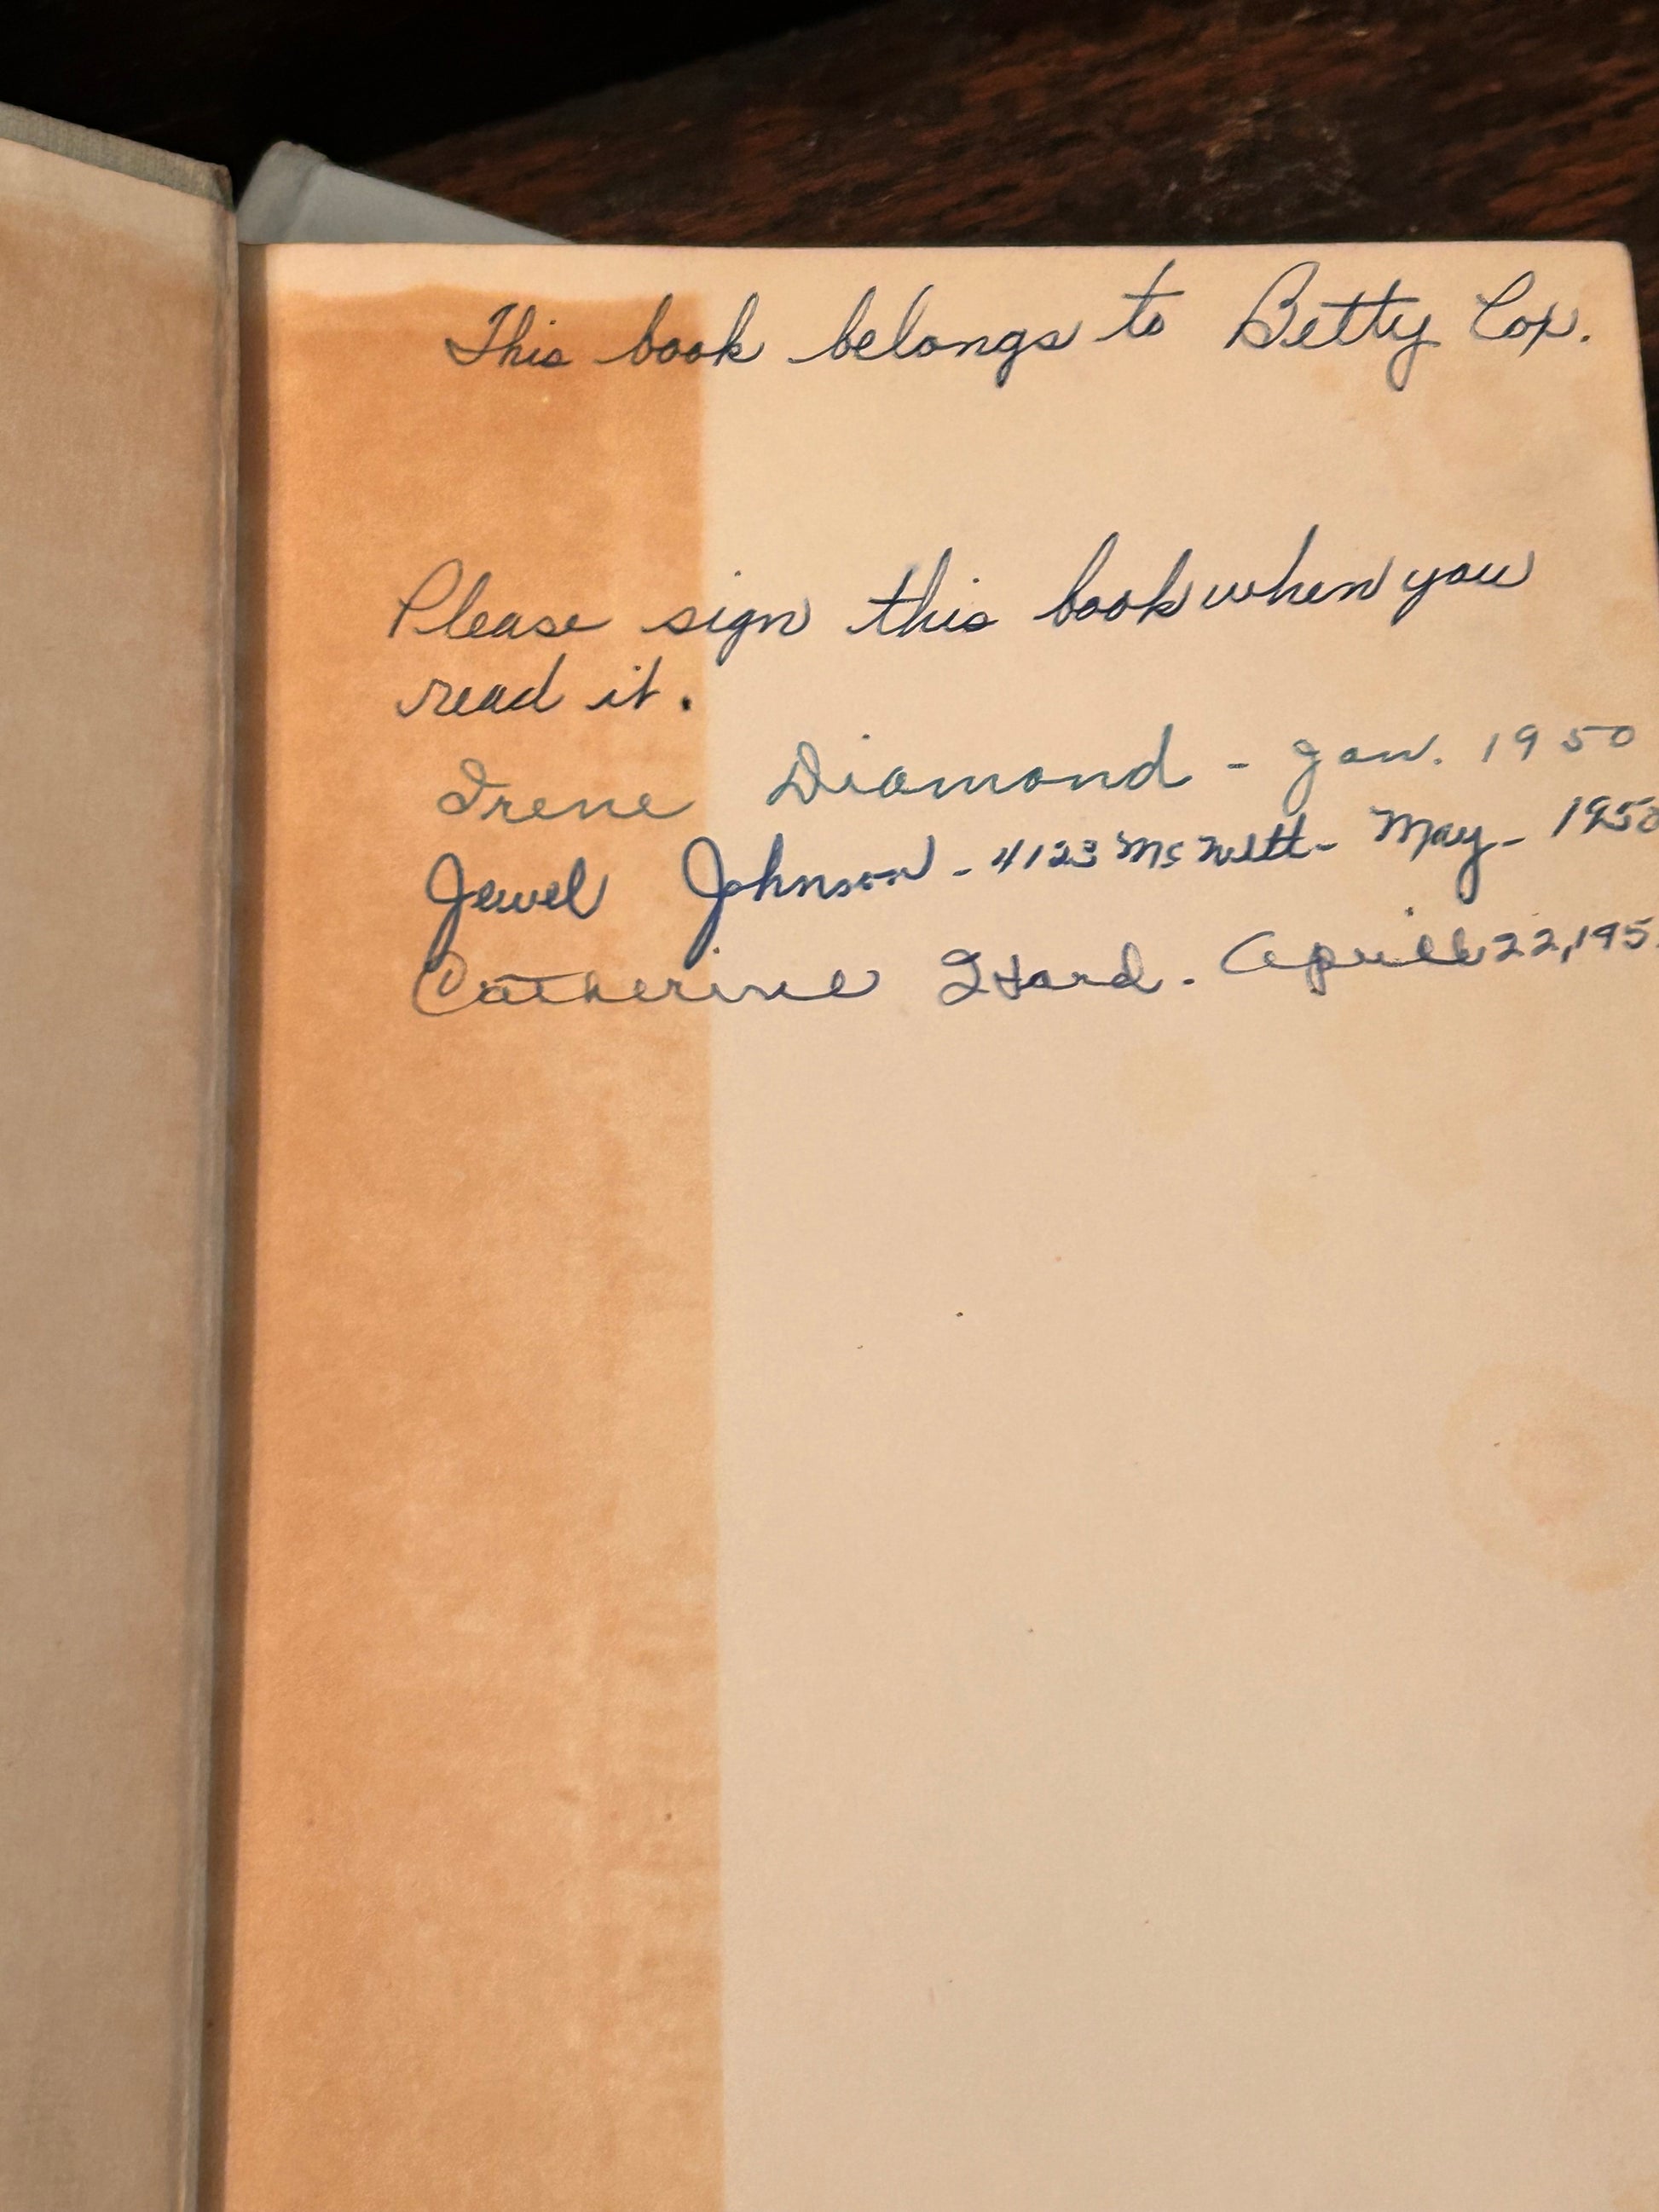 This book belongs to Betty Cox.
Please sign this book when you
read it.
Irene Diamond - Jan. 1950
Jewel Johnson - 4123 - May - 1950
Catherine - April 22, 195